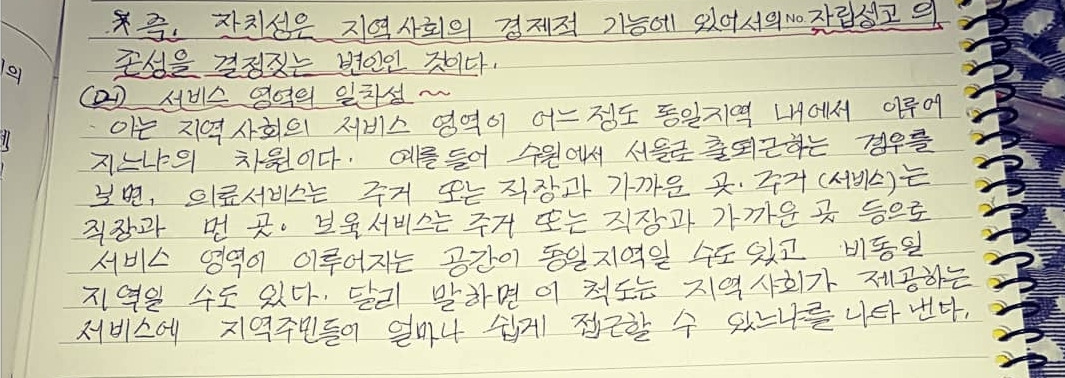 * 즉, 자치성은 지역사회의 경제적 기능에 있어서의 No. 자립성고 의
존성을 결정짓는 변인인 것이다.
(2) 서비스 영역의 일치성 ~
· 이는 지역사회의 서비스 영역이 어느 정도 동일지역 내에서 이루어
지느냐의 차원이다. 예를 들어 수원에서 서울로 출퇴근하는 경우를
보면, 의료서비스는 주거 또는 직장과 가까운 곳. 주거(서비스)는
직장과 먼 곳. 보육서비스는 주거 또는 직장과 가까운 곳 등으로
서비스 영역이 이루어지는 공간이 동일지역일 수도 있고 비동일
지역일 수도 있다. 달리 말하면 이 척도는 지역사회가 제공하는
서비스에 지역주민들이 얼마나 쉽게 접근할 수 있느냐를 나타낸다.